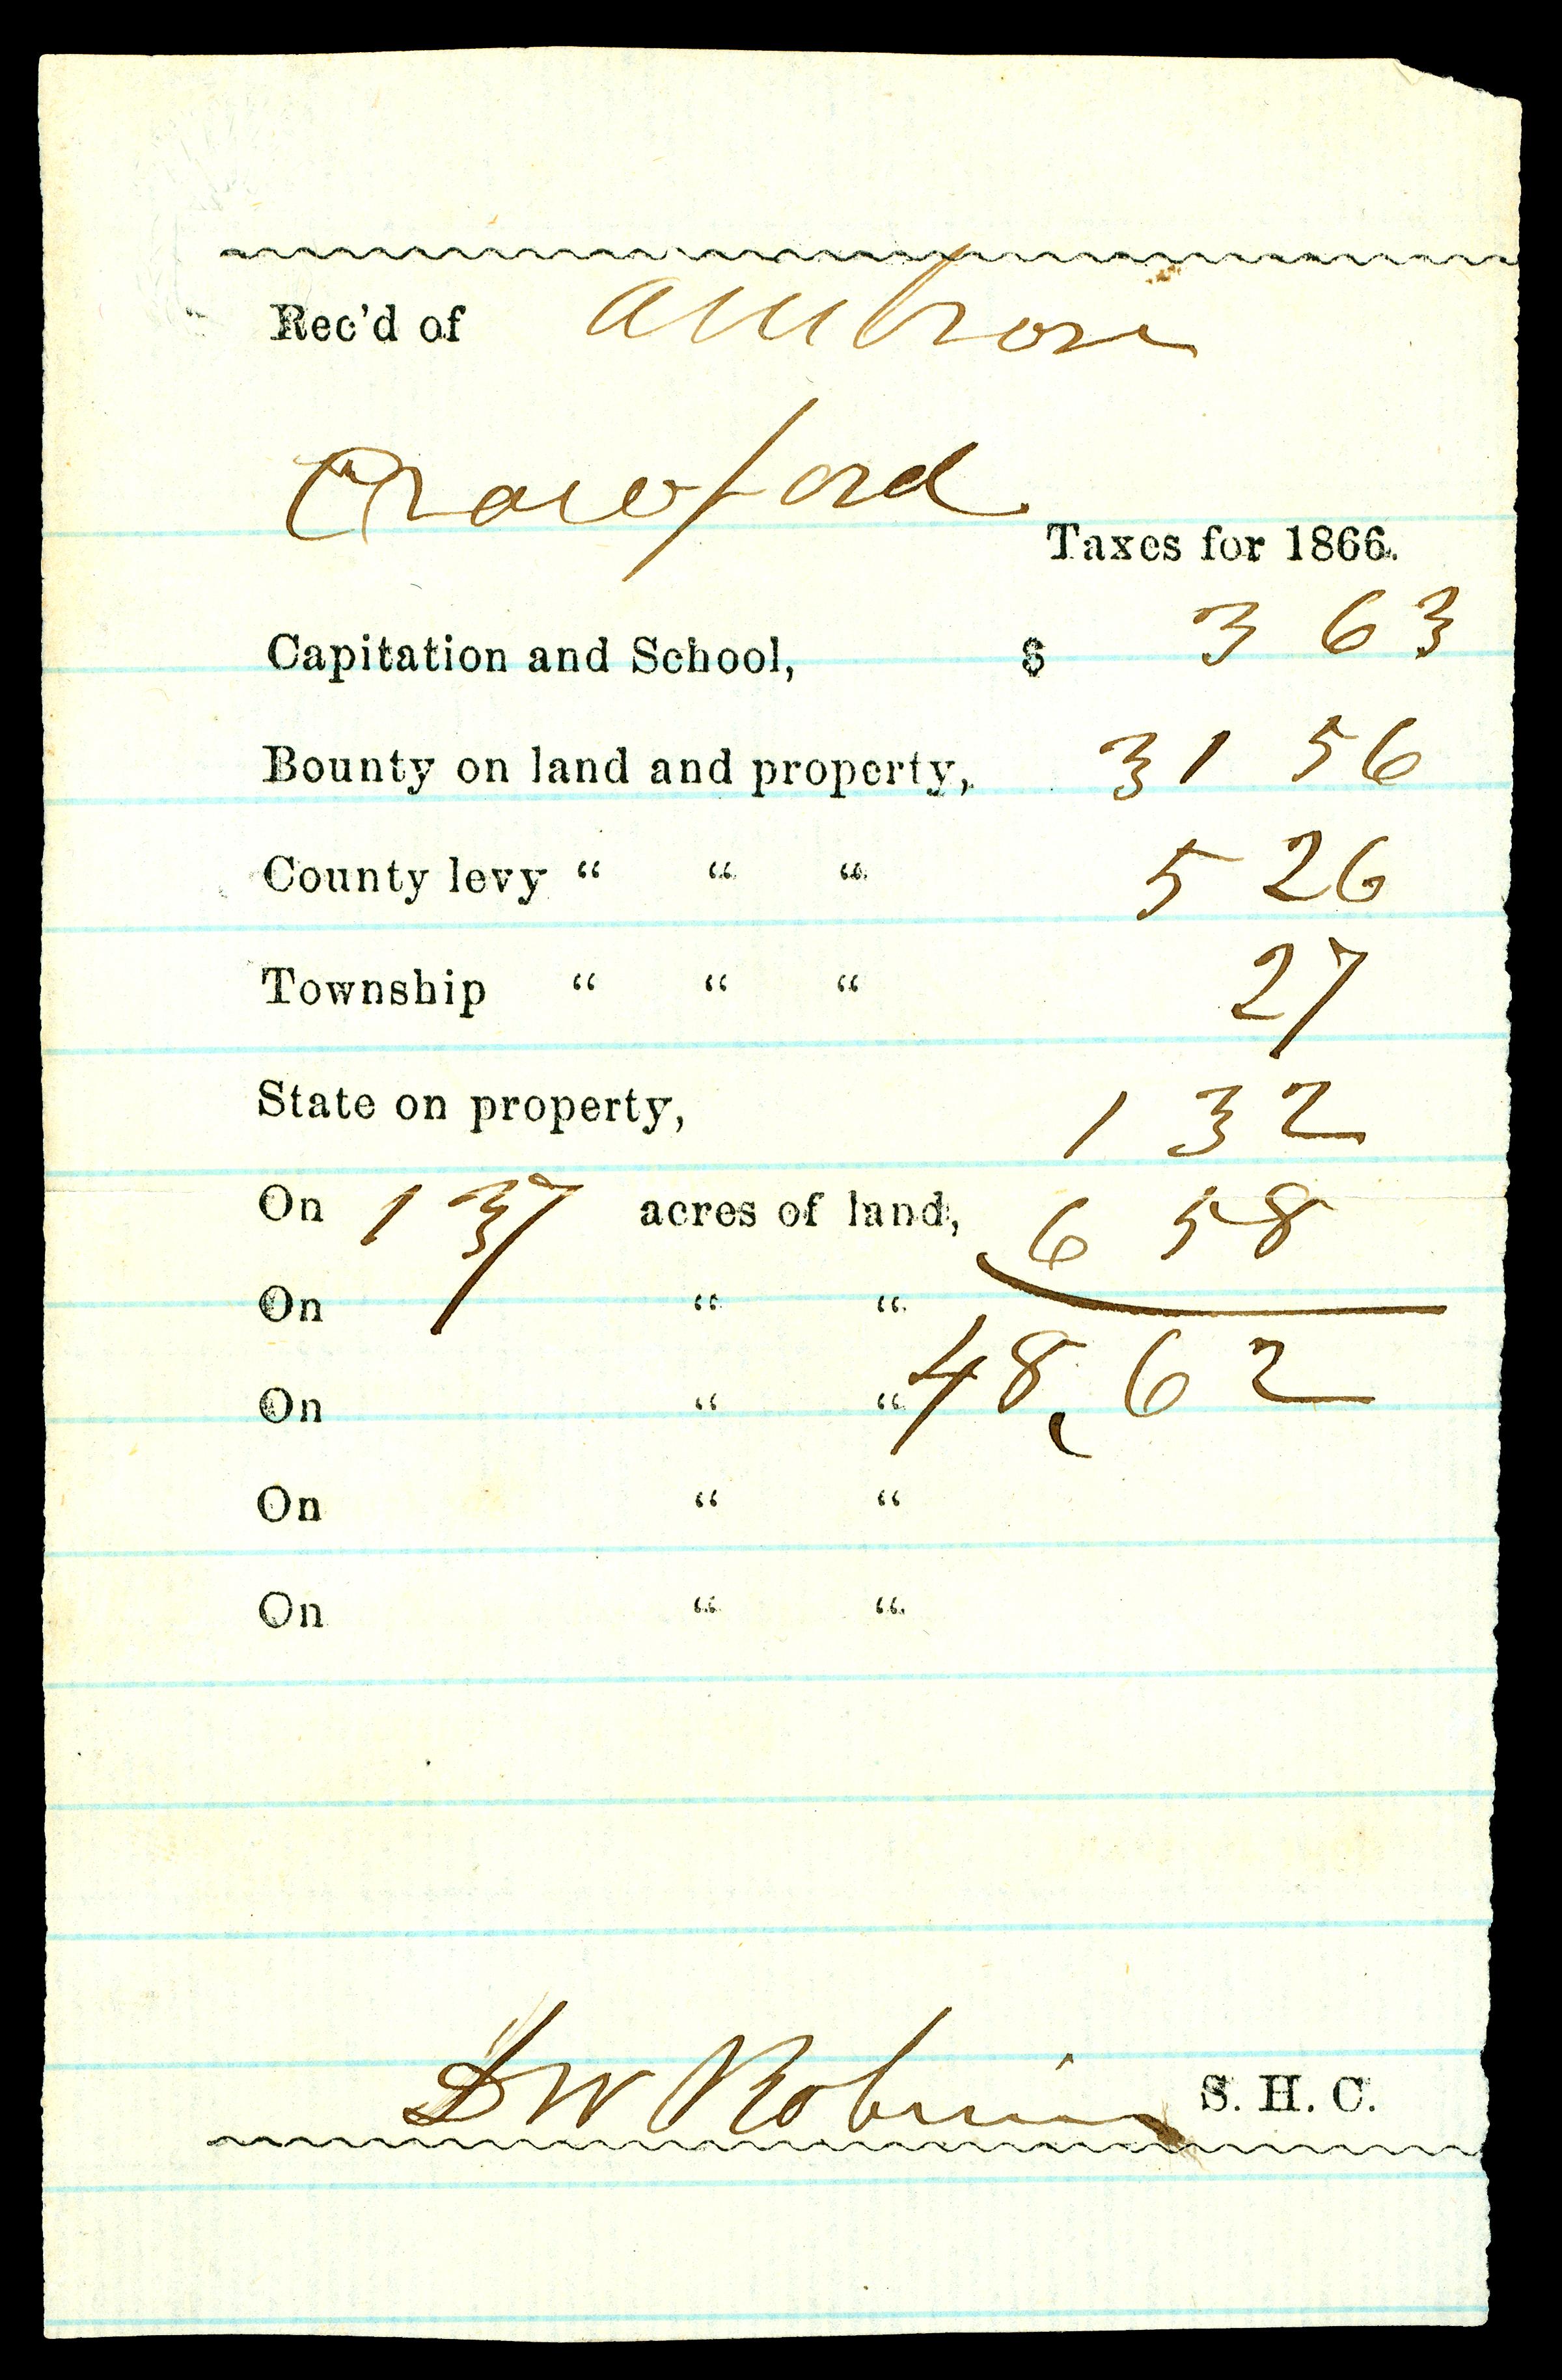 Rec'd of Ambrose
Crawford
Taxes for 1866.
Capitation and School, $ 3 63
Bounty on land and property, 31 56
County levy " " " 5 26
Township " " " 27
State on property, 1 32
On 137 acres of land, 6 58
On " "
48,62
On " "
On " "
On " "
D W Robinson S. H. C.